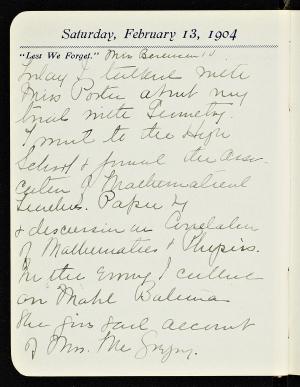 Saturday, February 13, 1904
"Lest We Forget." Miss
Today I talked with
Miss Porter about my
trial with Geometry.
I went to the High
School & found the Asso-
ciation of Mathematical
Teachers. Paper by
& discussion on Correlation
of Mathematics & Physics.
In the evening I called
on Mabel
She gives sad account
of Mrs. Mc Gregory.